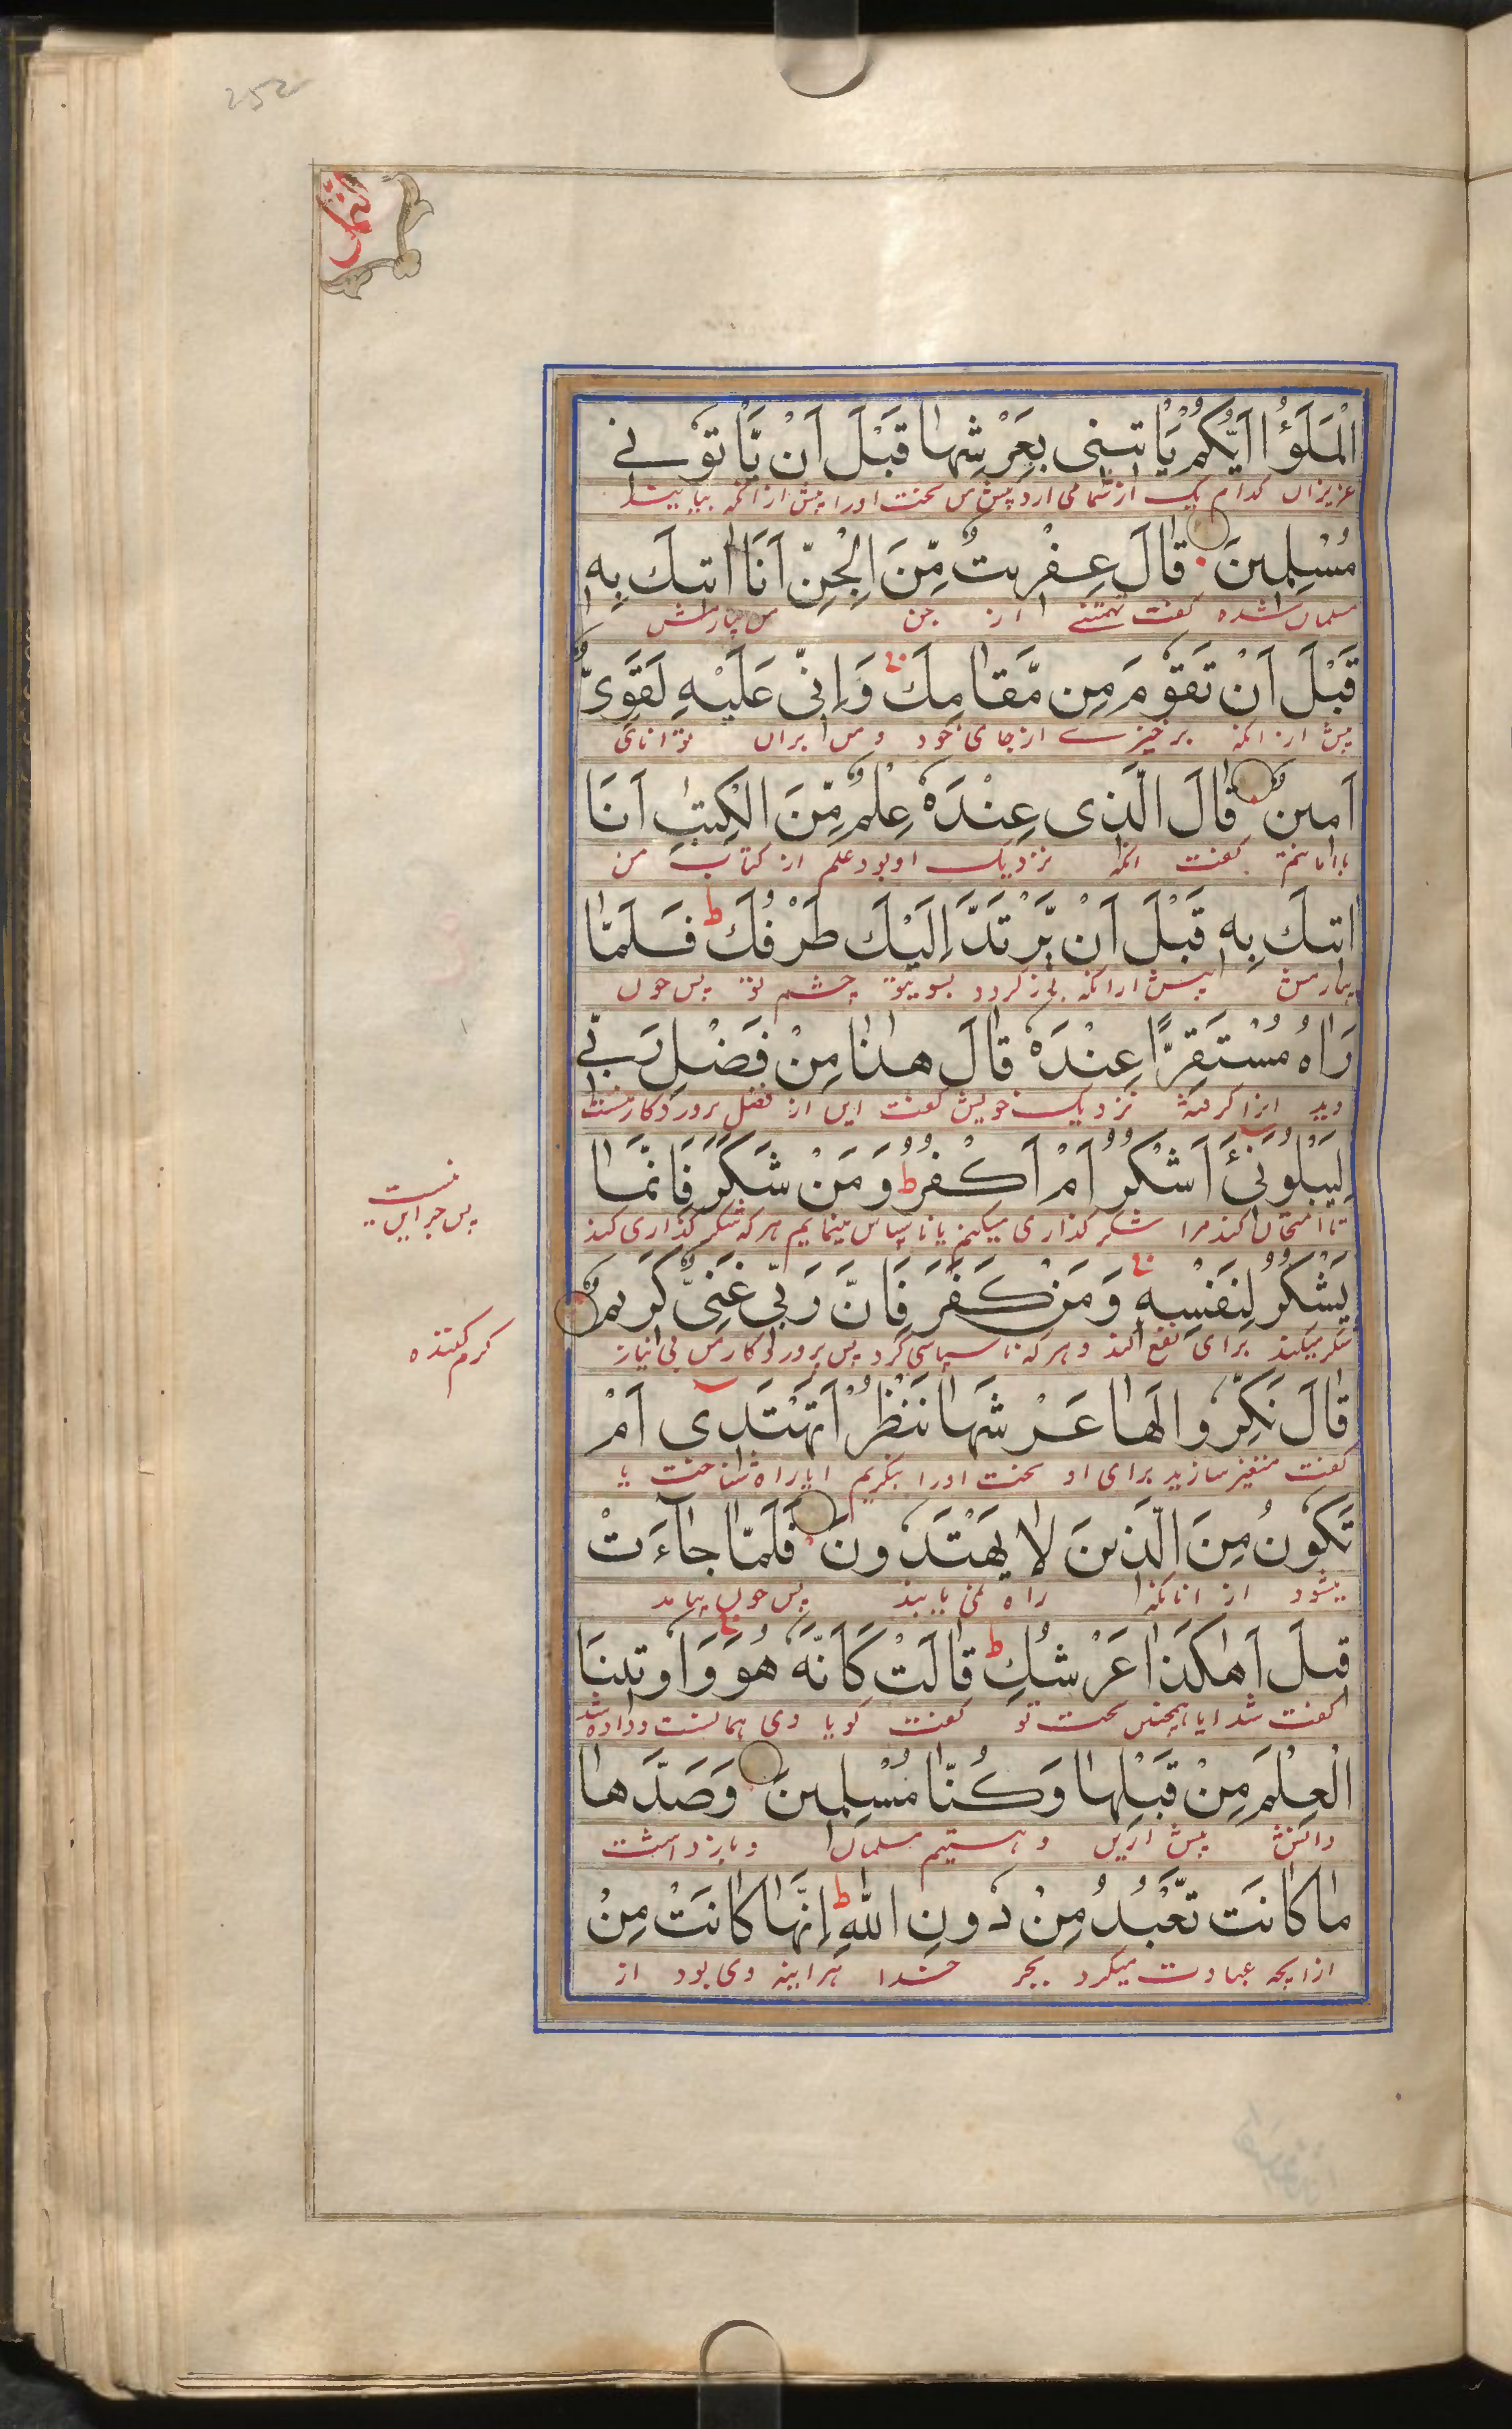 252
النمل
الْمَلَؤُا اَيُّكُمْ يَاْتِينِى بِعَرْشِهَا قَبْلَ اَنْ يَّاْتُونِے
عزیزان کدام یک از شما می ارد پیش من تخت اورا پیش از انکه بیایند
مُسْلِمِينَ قَالَ عِفْرِيتٌ مِّنَ الْجِنِّ اَنَا اٰتِيكَ بِهٖ
مسلمان شده گفت تهمتنے از جن من بیارمش
قَبْلَ اَنْ تَقُوْمَ مِن مَّقَامِكَ وَاِنِّى عَلَيْهِ لَقَوِىٌّ
پیش از انکه برخیزے از جای خود و من بران توانای
اَمِينٌ قَالَ الَّذِى عِنْدَهٗ عِلْمٌ مِّنَ الْكِتٰبِ اَنَا
با امانتم گفت انکه نزدیک او بود علم از کتاب من
اٰتِيكَ بِهٖ قَبْلَ اَنْ يَّرْتَدَّ اِلَيْكَ طَرْفُكَ ط فَلَمَّا
بیارمش پیش ازانکه باز گردد بسوی تو چشم تو پس چون
رَاٰهُ مُسْتَقِرًّا عِنْدَهٗ قَالَ هٰذَا مِنْ فَضْلِ رَبِّے
دید انرا گرفته نزدیک خویش گفت این از فضل پروردکار منست
لِيَبْلُوَنِىٓ ءَاَشْكُرُ اَمْ اَكْفُرُ ط وَمَنْ شَكَرَ فَاِنَّمَا
تا امتحان کند مرا شکر گذاری میکنم یا ناسپاس مینمایم هرکه شکر گذاری کند
پس جز این نیست
يَشْكُرُ لِنَفْسِهٖ وَمَنْ كَفَرَ فَاِنَّ رَبِّى غَنِىٌّ كَرِيمٌ
شکر میکند برای نفع خود و هرکه ناسپاسی کرد پس پروردکار من بی نیاز
کرم کننده
قَالَ نَكِّرُوا لَهَا عَرْشَهَا نَنْظُرْ اَتَهْتَدِىٓ اَمْ
گفت متغیر سازید برای او تخت اورا بنگریم ایا راه شناخت یا
تَكُونُ مِنَ الَّذِينَ لَا يَهْتَدُونَ فَلَمَّا جَآءَتْ
میشود از انانکه راه نمی یابند پس چون بیامد
قِيلَ اَهٰكَذَا عَرْشُكِ ط قَالَتْ كَاَنَّهٗ هُوَ وَاُوتِينَا
گفت شد ایا همچنین تخت تو گفت گویا وی همانست و داده شد
الْعِلْمَ مِنْ قَبْلِهَا وَكُنَّا مُسْلِمِينَ وَصَدَّهَا
دانش پیش ازین و هستیم مسلمان و باز داشت
مَا كَانَت تَّعْبُدُ مِنْ دُونِ اللّٰهِ ط اِنَّهَا كَانَتْ مِنْ
ازانچه عبادت میکرد بجز خدا هراینه وی بود از